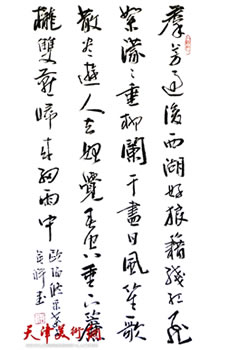 羣芳過後西湖好狼籍殘紅飛
絮濛〻垂柳闌干盡日風笙歌
散盡遊人去始覺春空垂下簾
櫳雙燕歸來細雨中
歐陽脩采桑子
書
天津美術網